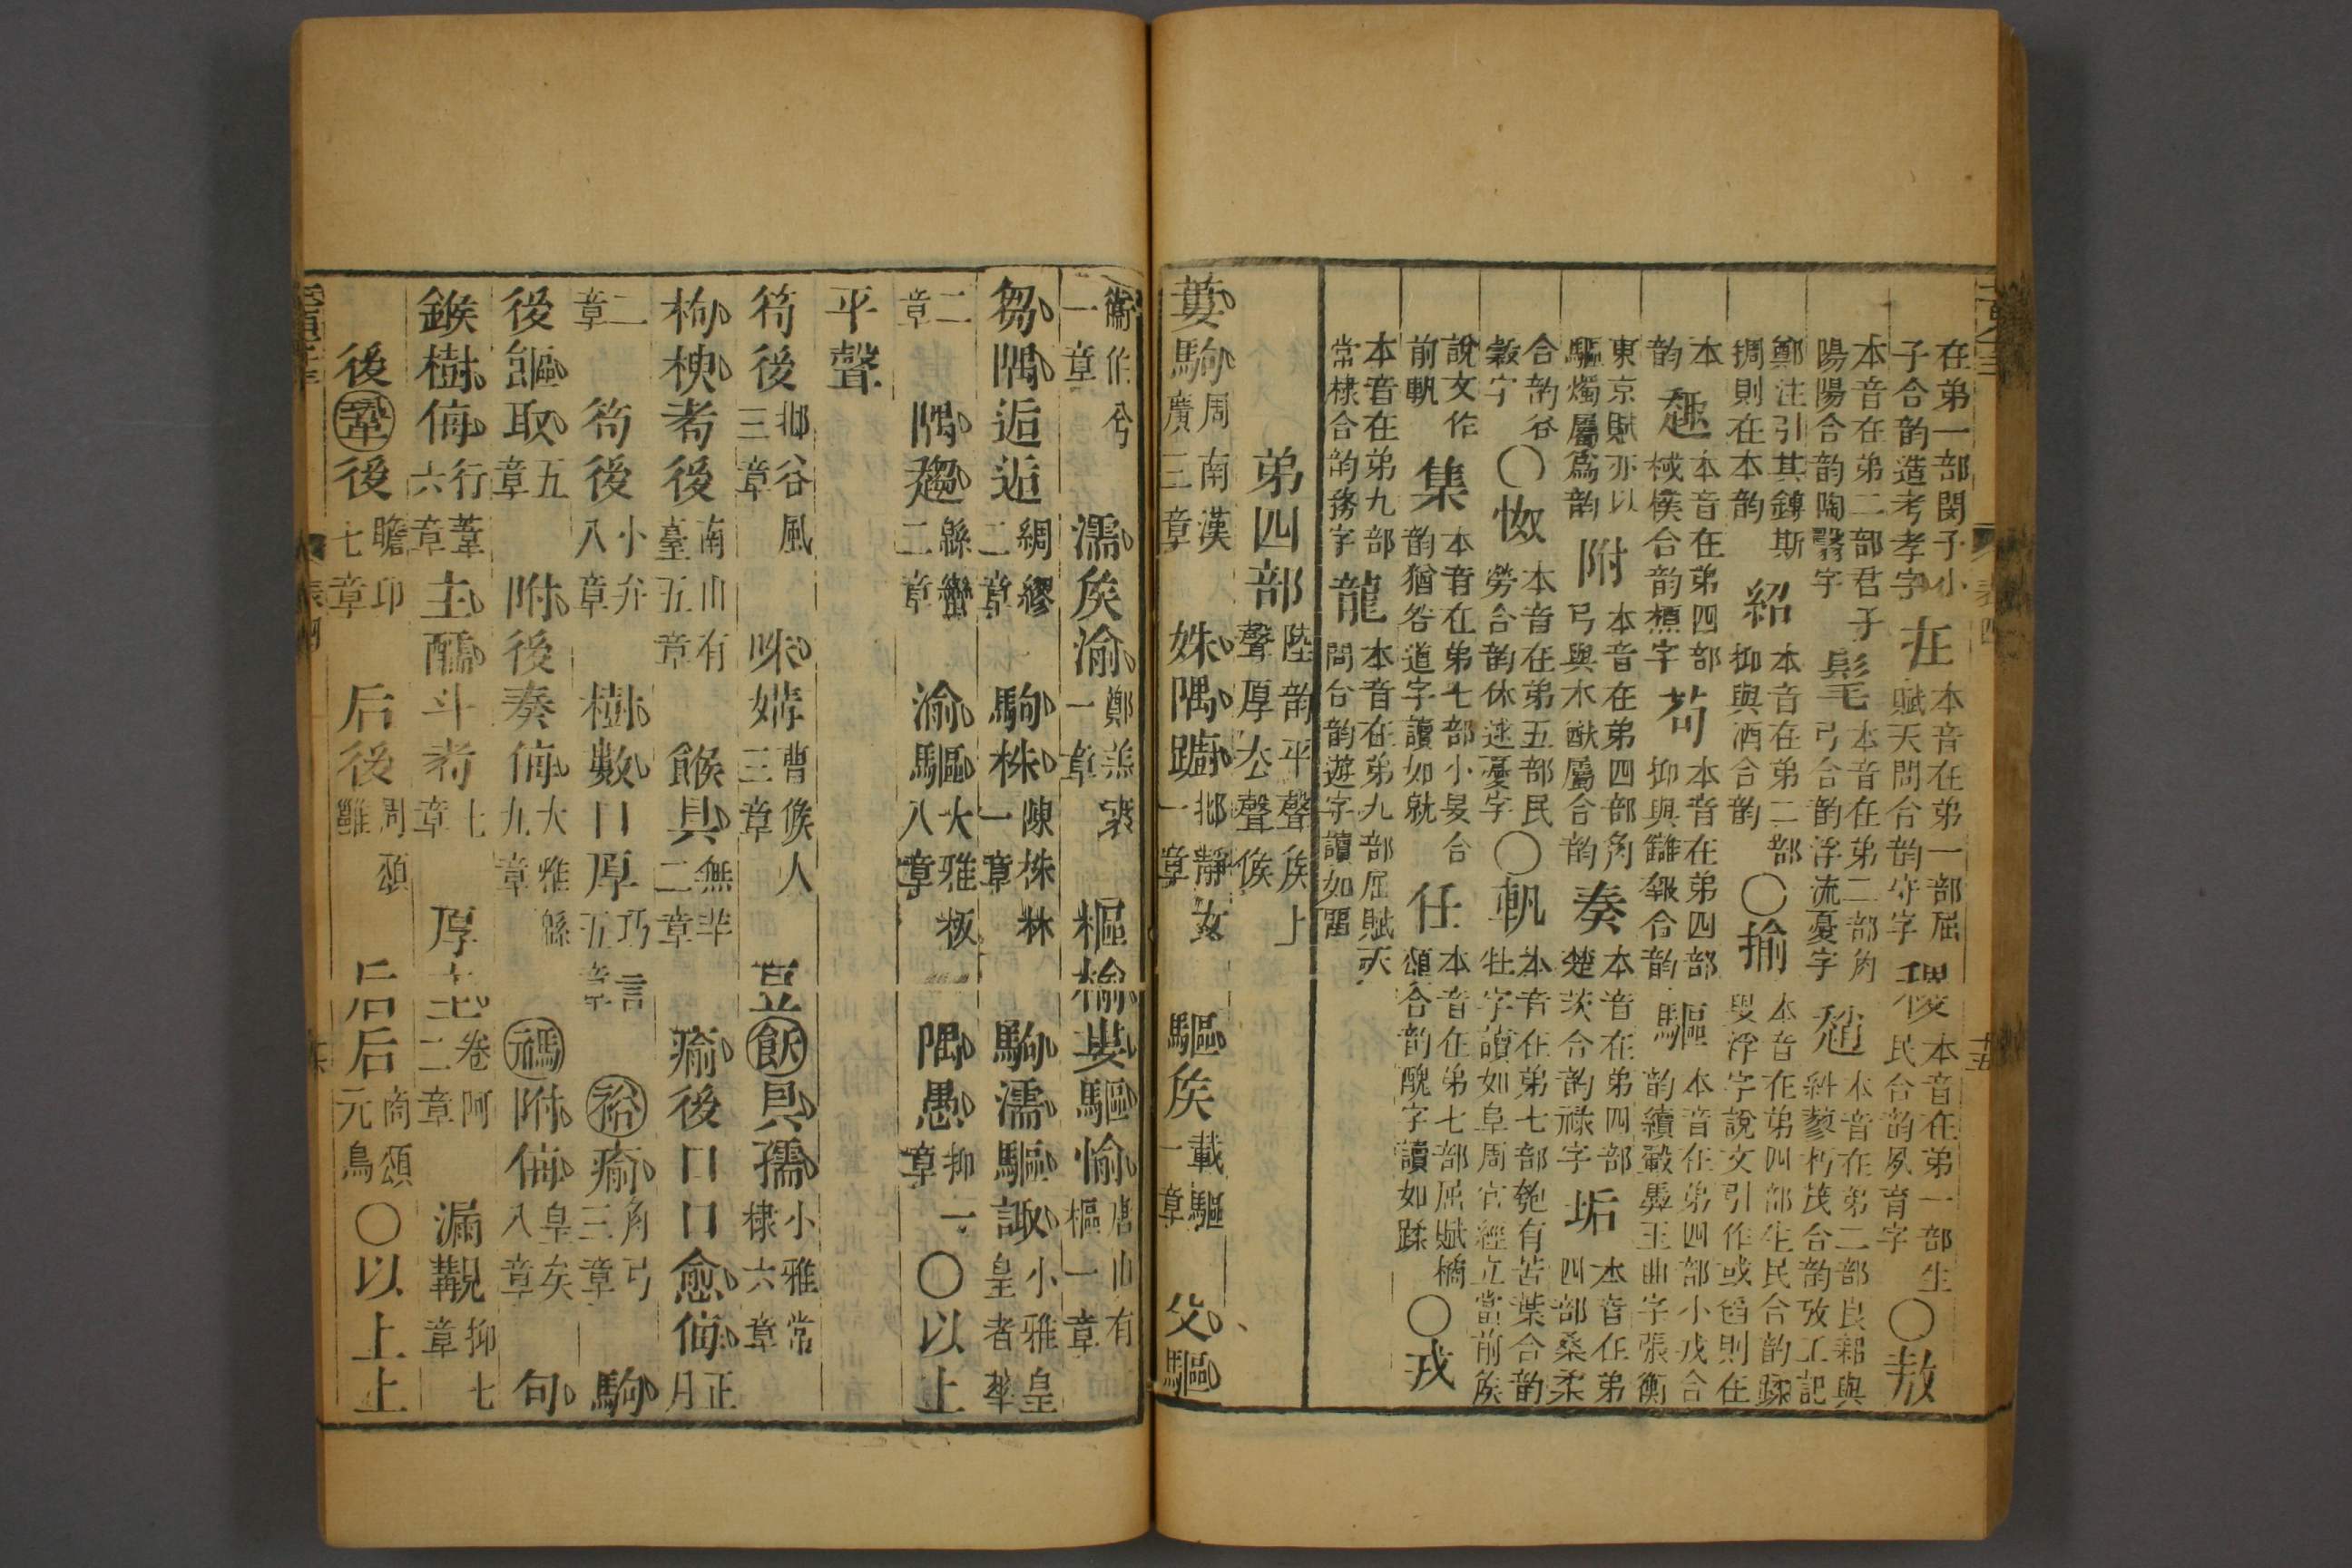 在弟一部閔予小子合韵造考孝字 在 本音在弟一部屈賦天問合韵守字 稷 本音在弟一部生民合韵夙育字 〇敖
本音在弟二部君子陽陽合韵陶翿字 髦 本音在弟二部角弓合韵浮流憂字 趙 本音在弟二部良耜與糾蓼朽茂合韵攷工記
鄭注引其鎛斯捣則在本韵 紹 本音在弟二部抑與酒合韵 〇揄 本音在弟四部生民合韵蹂叟浮字說文引作或舀則在
本韵 趣 本音在弟四部棫樸合韵槱字 苟 本音在弟四部抑與讎報合韵 驅 本音在弟四部小戎合韵續轂馵玉曲字張衡
東京賦亦以驅燭屬爲韵 附 本音在弟四部角弓與木猷屬合韵 奏 本音在弟四部楚茨合韵祿字 垢 本音在弟四部桑柔
合韵谷穀字 〇怓 本音在弟五部民勞合韵休逑憂字 〇軌 本音在弟七部匏有苦葉合韵牡字讀如阜周官經立當前矦
說文作前軓 集 本音在弟七部小旻合韵猶咎道字讀如就 任 本音在弟七部屈賦橘頌合韵醜字讀如蹂 〇戎
本音在弟九部常棣合韵務字 龍 本音在弟九部屈賦天問合韵遊字讀如畱
弟四部 陸韵平聲矦上聲厚去聲候
蔞駒 周南漢廣三章 姝隅躕 邶靜女一章 驅矦 載驅一章 殳驅
衞伯兮一章 濡矦渝 鄭羔裘一章 樞榆婁驅愉 唐山有樞一章
芻隅逅逅 綢繆二章 駒株 陳株林二章 駒濡驅諏 小雅皇皇者華
二章 隅趨 緜蠻二章 渝驅 大雅板八章 隅愚 抑一章 〇以上
平聲
笱後 邶谷風三章 咮媾 曹候人三章 豆飫具孺 小雅常棣六章
枸楰耇後 南山有臺五章 餱具 無羊二章 瘉後口口愈侮 正月
二章 笱後 小弁八章 樹數口厚 巧言五章 裕瘉 角弓三章 駒
後饇取 五章 附後奏侮 大雅緜九章 禡附侮 皇矣八章 句
鍭樹侮 行葦六章 主醹斗耇 七章 厚主 卷阿二章 漏覯 抑七章
後鞏後 瞻卬七章 后後 周頌雝 后后 商頌元鳥 〇以上上